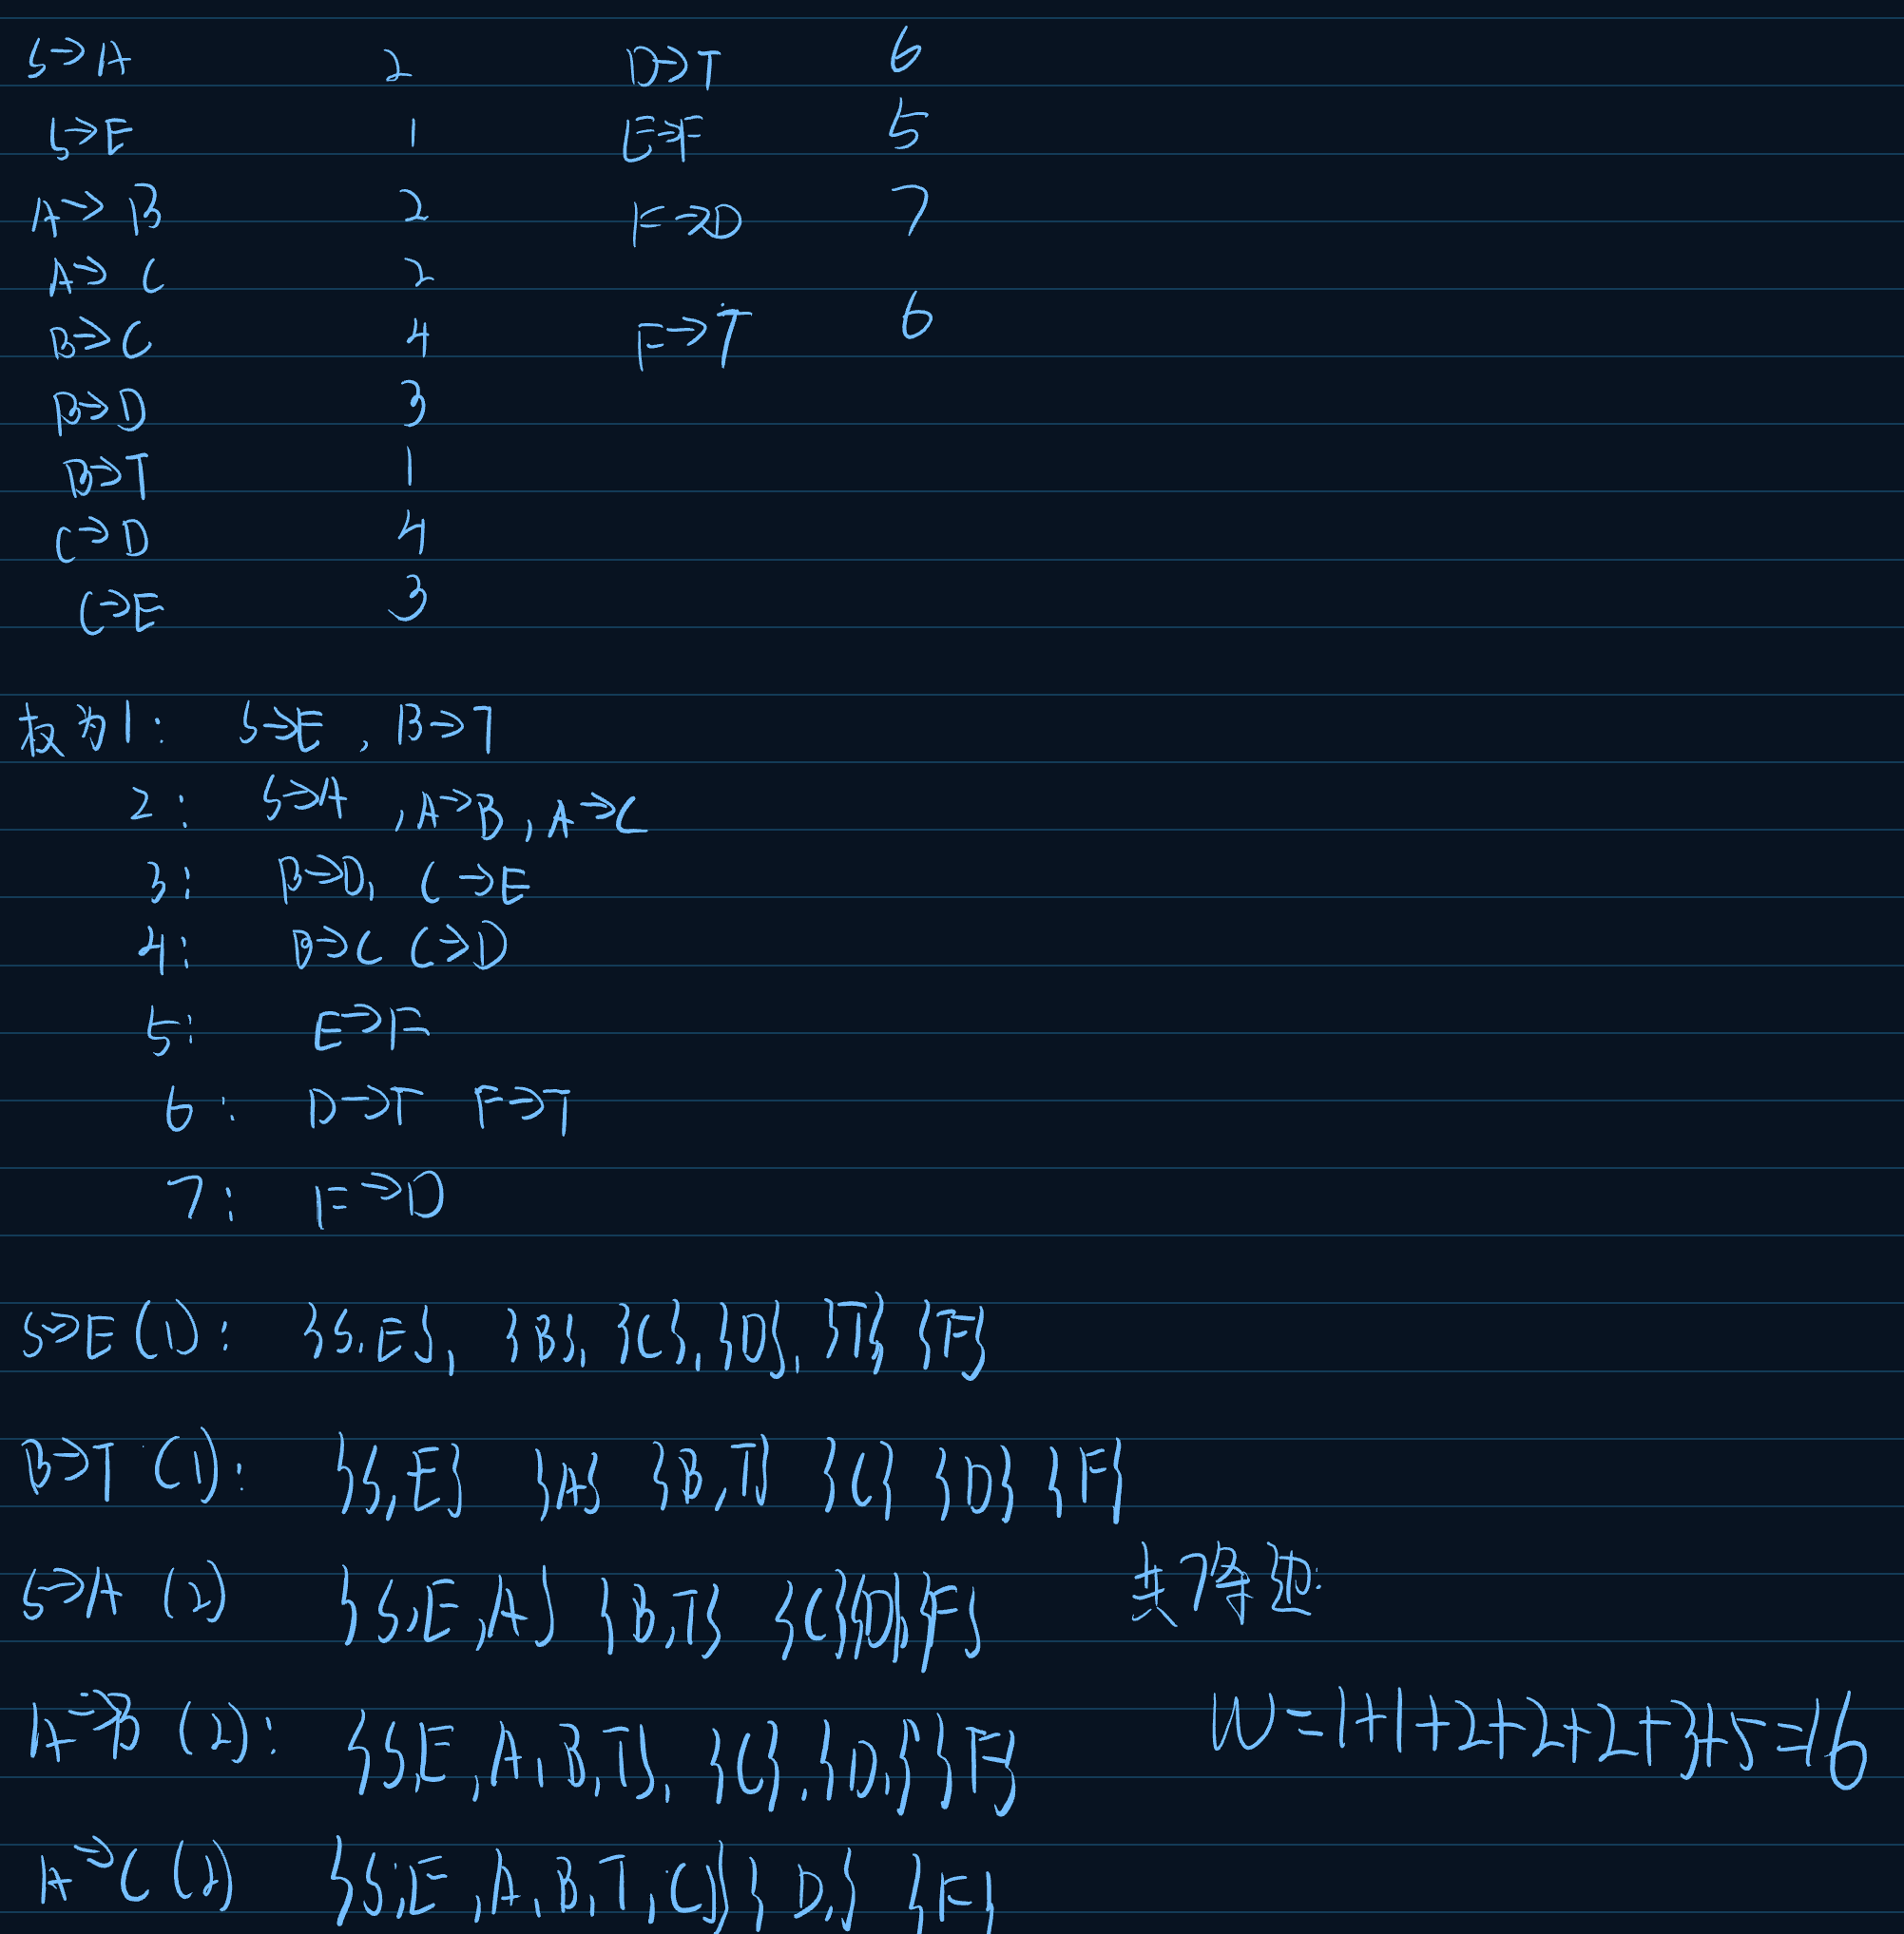 S⇒A 2 D⇒T 6
S⇒E 1 E⇒F 5
A⇒B 2 F⇒D 7
A⇒C 2
B⇒C 4 F⇒T 6
B⇒D 3
B⇒T 1
C⇒D 4
C⇒E 3
权为1: S⇒E, B⇒T
2: S⇒A, A⇒B, A⇒C
3: B⇒D, C⇒E
4: B⇒C C⇒D
5: E⇒F
6: D⇒T F⇒T
7: F⇒D
S⇒E (1): {S,E}, {B}, {C}, {D}, {T} {F}
B⇒T (1): {S,E} {A} {B,T} {C} {D} {F}
S⇒A (2) {S,E,A} {B,T} {C}{D}{F} 共7条边:
A⇒B (2): {S,E,A,B,T}, {C}, {D,} {F} W=1+1+2+2+2+3+5=16
A⇒C (2) {S,E,A,B,T,C} {D,} {F}